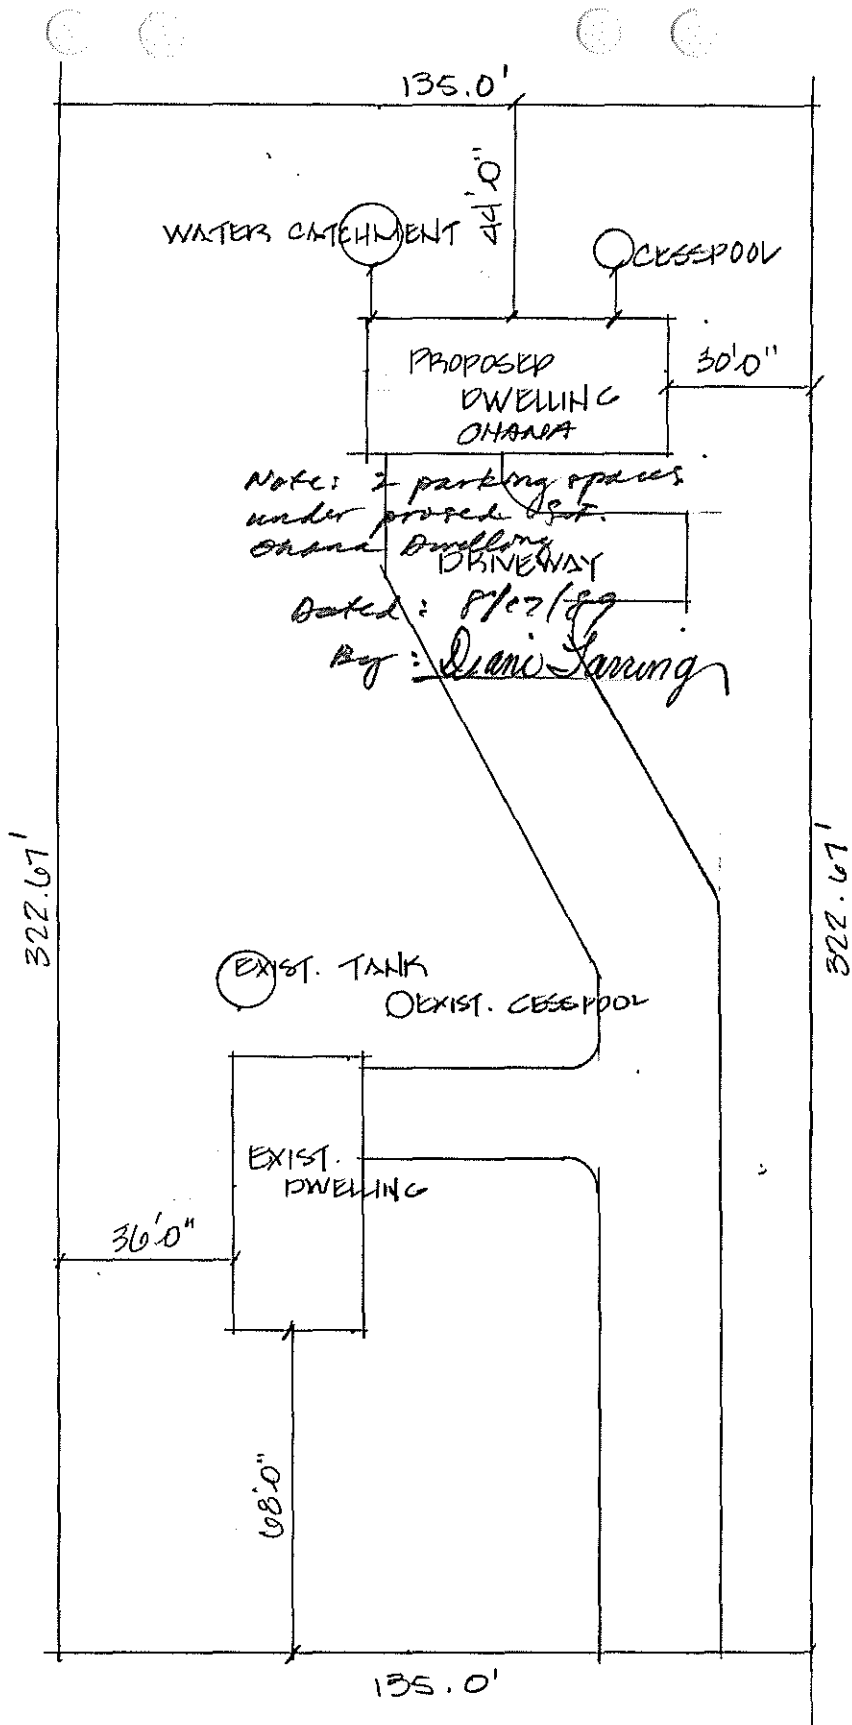 135.0'
44'0"
WATER CATCHMENT
CESSPOOL
PROPOSED
DWELLING
OHANA
30'0"
Note: 2 parking spaces
under prosed
Ohana Dwelling
DRIVEWAY
Dated: 8/17/89
By:
322.67'
322.67'
EXIST. TANK
EXIST. CESSPOOL
EXIST.
DWELLING
36'0"
68'0"
135.0'